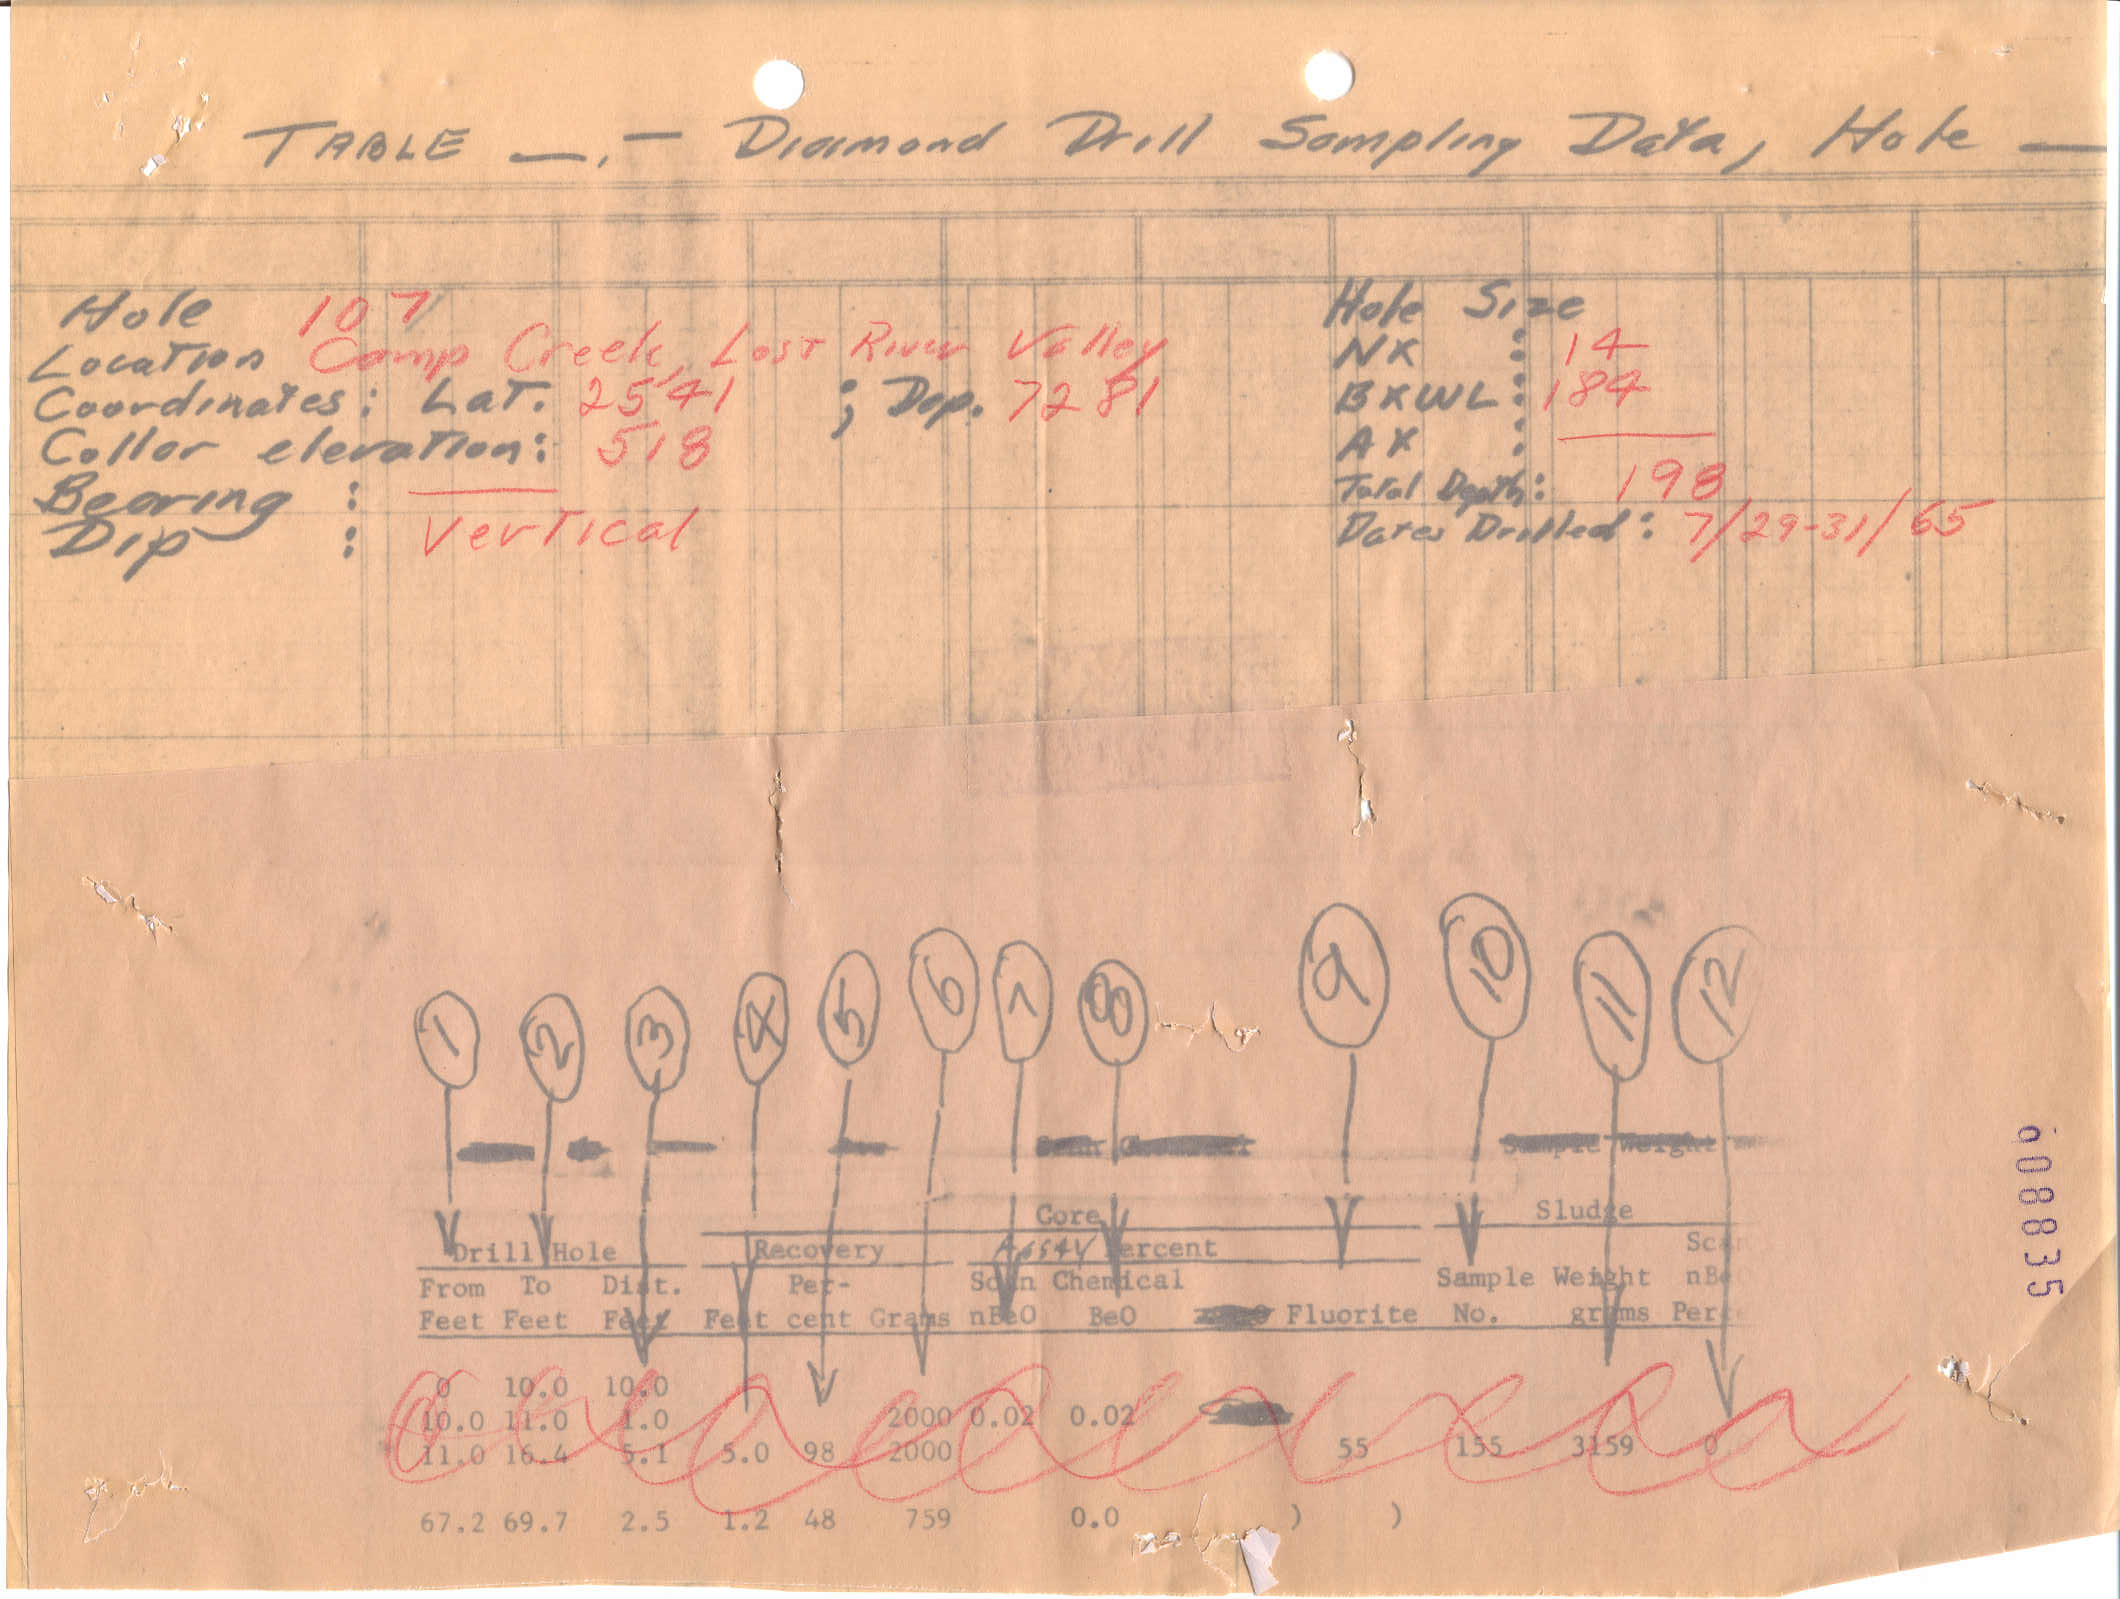 TABLE —.— Diamond Drill Sampling Data, Hole —
Hole 107
Location Camp Creek, Lost River Valley
Coordinates: Lat. 2541 ; Dep. 7281
Collar elevation: 518
Bearing : —
Dip : Vertical
Hole Size
NX : 14
BXWL: 184
AX : —
Total Depth: 198
Dates Drilled: 7/29-31/65
1 2 3 4 5 6 7 8 9 10 11 12
Sample Weight
Core Sludge
Drill Hole Recovery Assay Percent Scan
From To Dist. Per- Scan Chemical Sample Weight nBeO
Feet Feet Feet Feet cent Grams nBeO BeO Fluorite No. grams Perc
0 10.0 10.0
10.0 11.0 1.0 2000 0.02 0.02
11.0 16.4 5.1 5.0 98 2000 55 155 3159 0
67.2 69.7 2.5 1.2 48 759 0.0 ) )
608835